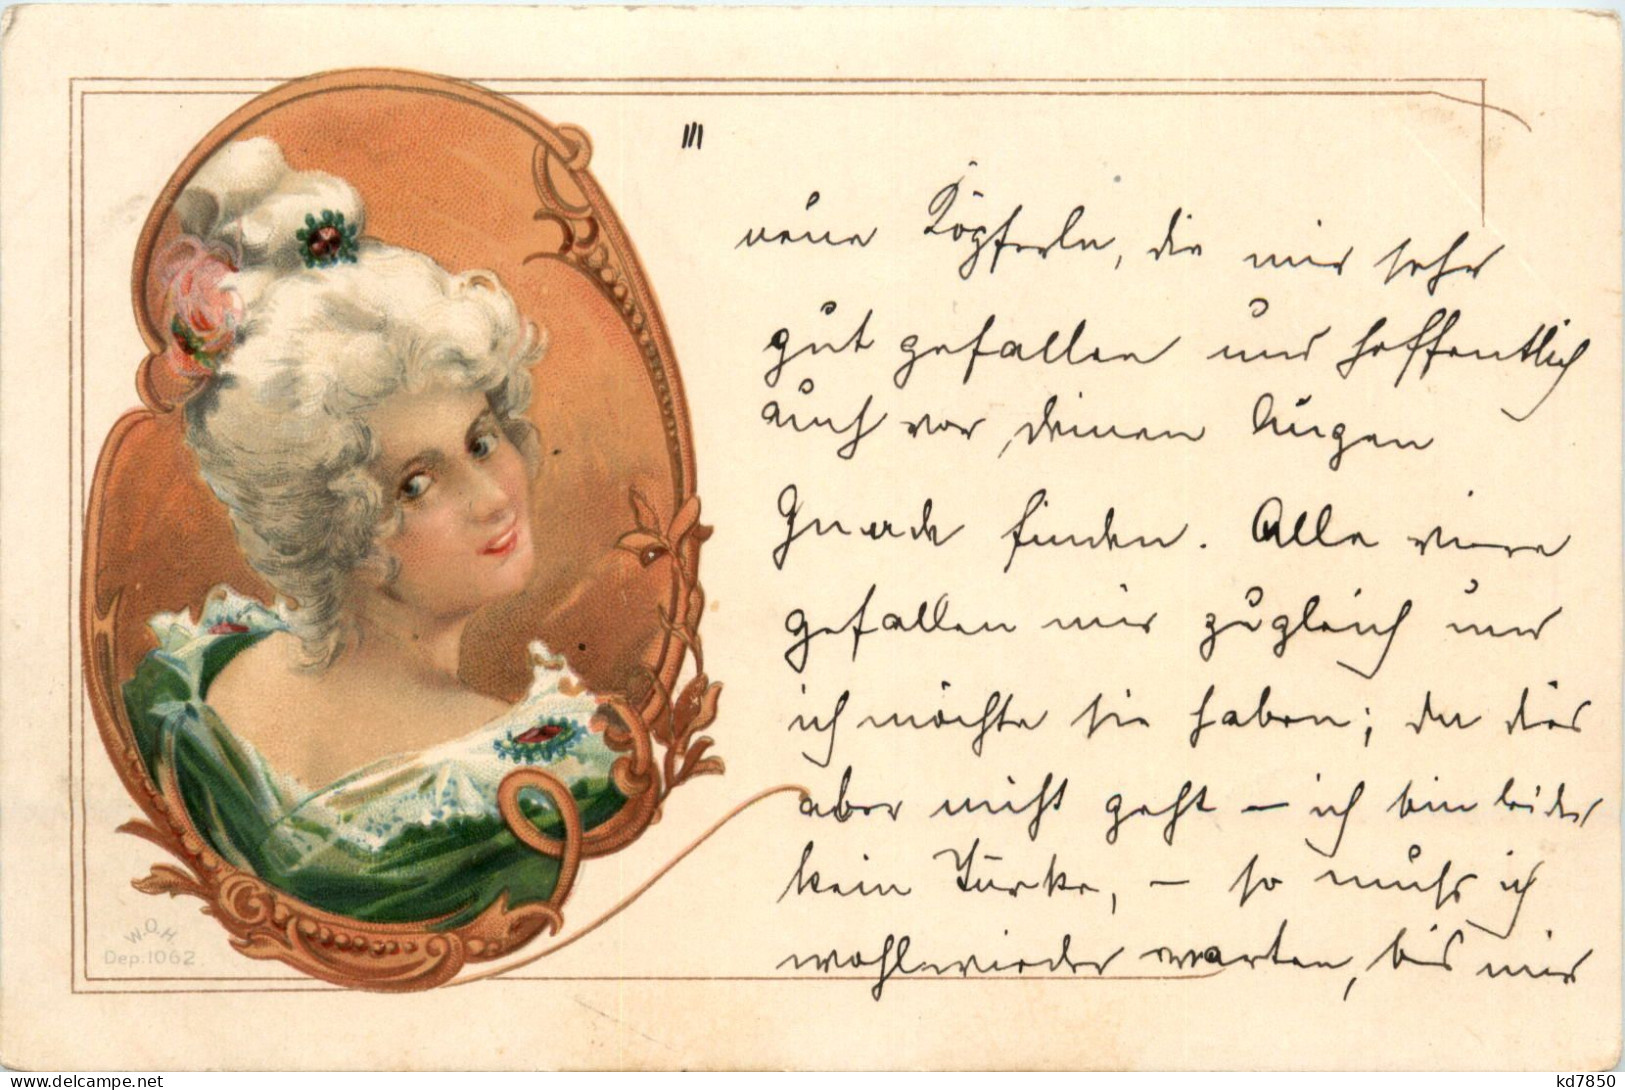 III
neue Köpferln, die mir sehr
gut gefallen und hoffentlich
auch vor deinen Augen
Gnade finden. Alle viere
gefallen mir zugleich und
ich möchte sie haben; da dies
aber nicht geht – ich bin leider
kein Türke, – so muß ich
wohl wieder warten, bis mir
W.O.H.
Dep. 1062.
delcampe.net
kd7850